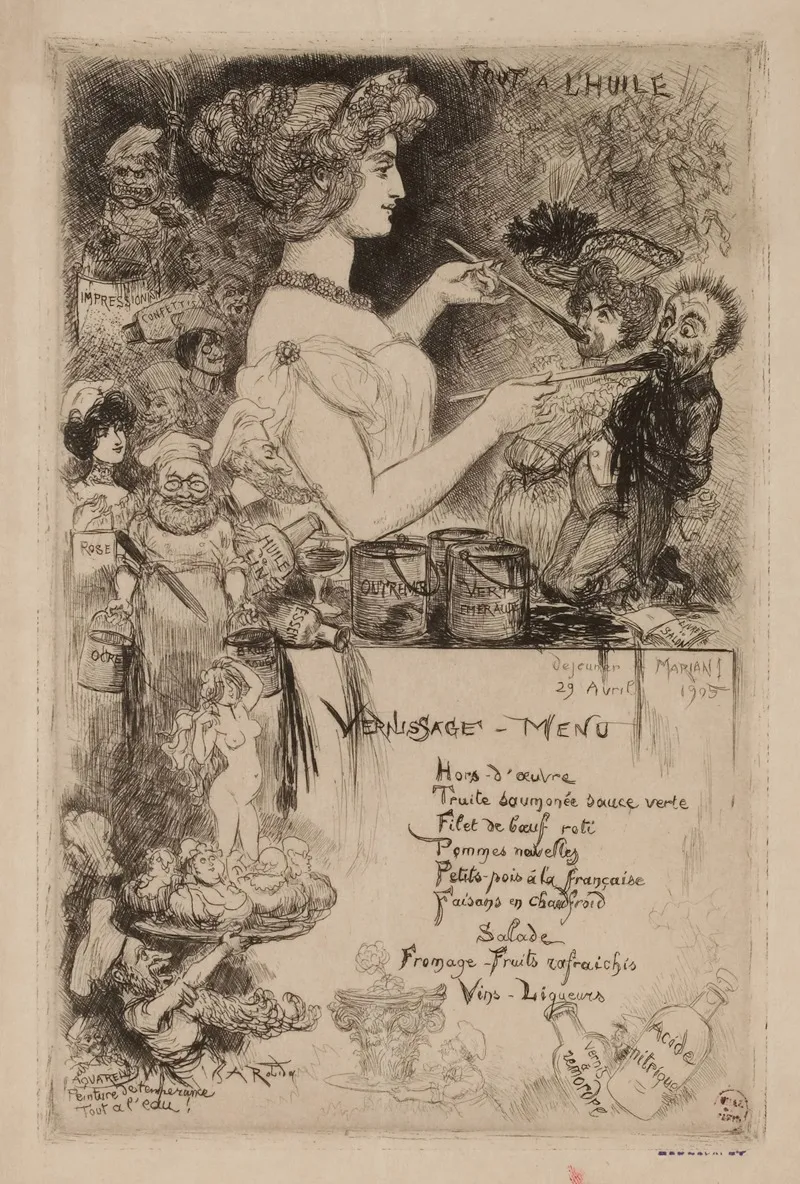 TOUT A L'HUILE
IMPRESSION
CONFETTIS
ROSE
HUILE
DE LIN
OUTREMER
VERT
EMERAUDE
ESS
OCRE
ROUGE
LIVRET
SALON
Dejeuner MARIANI
29 Avril 1905
VERNISSAGE - MENU
Hors-d'œuvre
Truite saumonée sauce verte
Filet de bœuf roti
Pommes nouvelles
Petits-pois à la française
Faisans en chaufroid
Salade
Fromage - Fruits rafraichis
Vins - Liqueurs
Vernis
à
remordre
Acide
nitrique
A Robida
AQUARELLE
Peinture de temperance
Tout a l'eau !